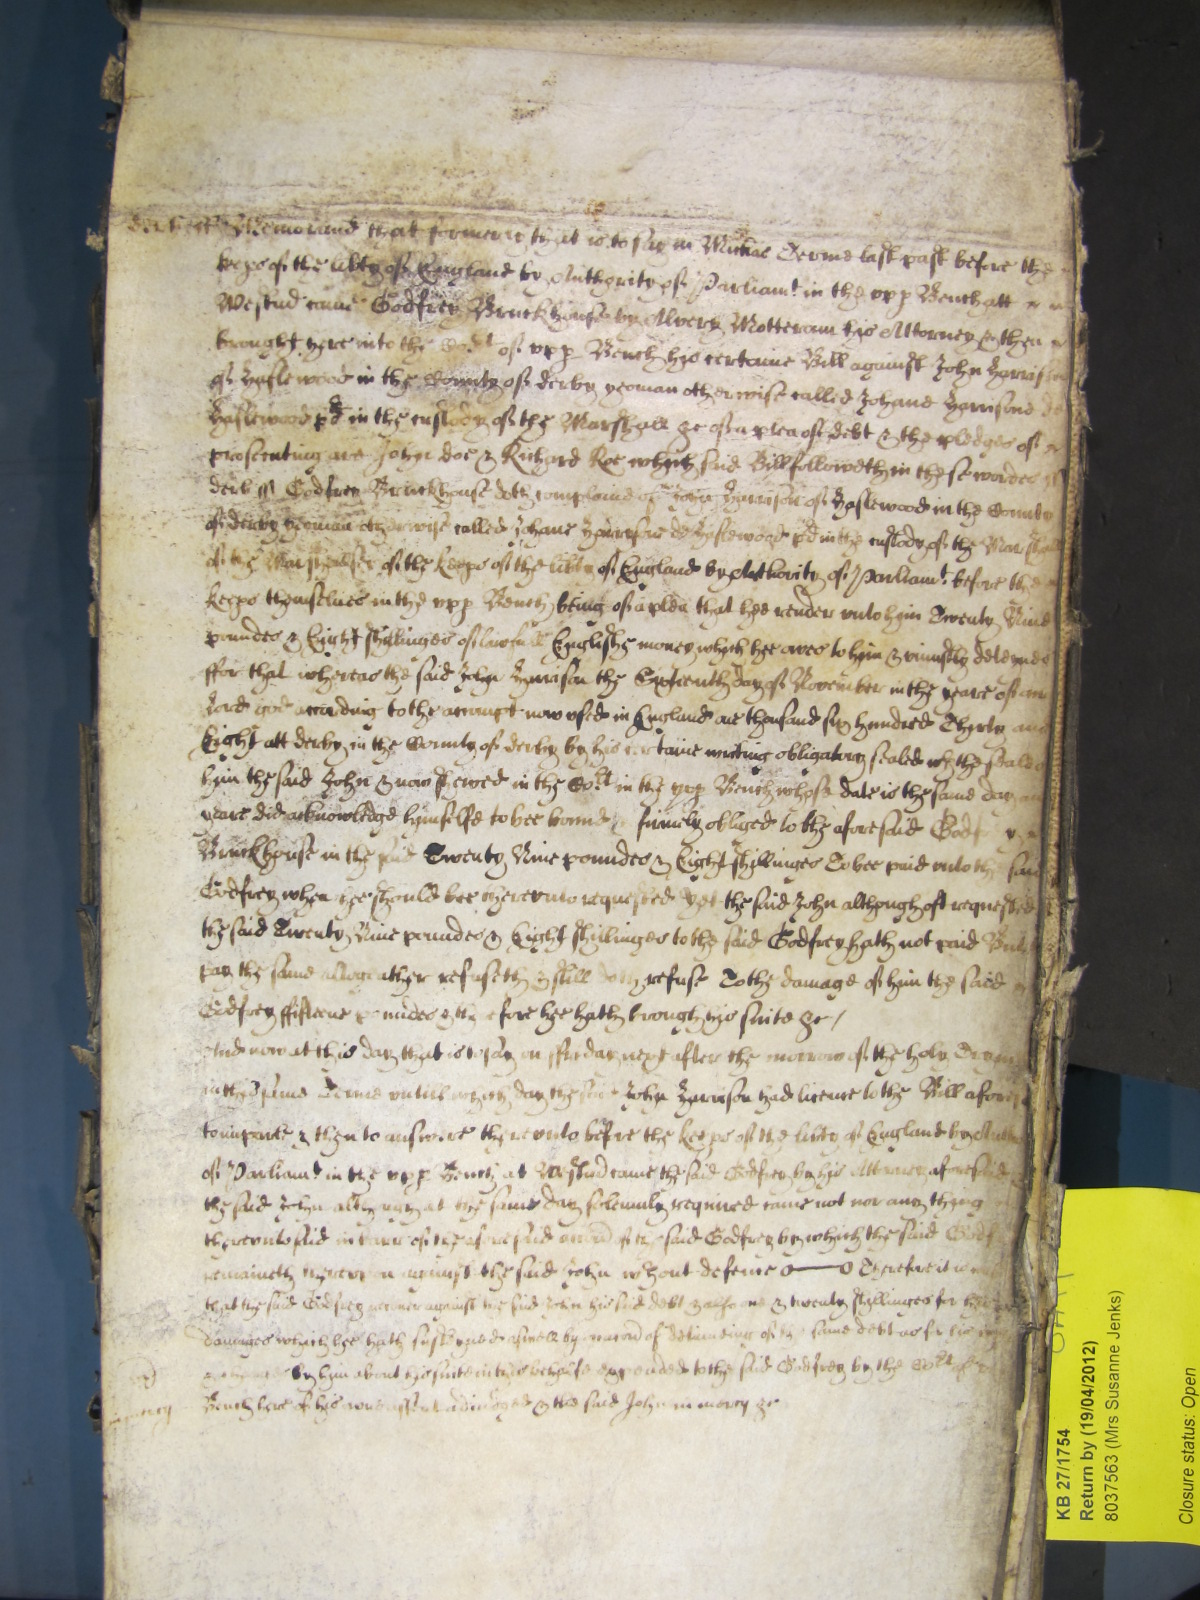 Memorand that formerly that is to say in Michas Terme last past before the
keeps of the libty of England by Authority of Parliamt in the upp Bench att
Westmr came Godfrey Bruckhouse by Alvery Motteram his Attorney & then
brought here into the Cort of upp Bench his certaine Bill against John Harrison
of Haslewood in the County of derby yeoman otherwise called Johane Harrisone de
Haslewood pd in the custody of the Marshall &c of a plea of debt & the pledges of
prosecuting are John doe & Richard Roe which said Bill followeth in these wordes
derb ss Godfrey Bruckhouse doth complaine of John Harrison of Haslewood in the County
of derby yeoman otherwise called Johane Harrisone de Haslewood pd in the custody of the Marshall
of the Marshalsee of the keeps of the libty of England by Authority of Parliamt before the
keeps themselves in the upp Bench being of a plea that hee render unto him Twenty Nine
poundes & Eight shillinges of lawfull Englishe money which hee owes to him & uniustly deteynes
ffor that whereas the said John Harrison the day of November in the yeare of our
Lord god according to the accompt now used in England one thousand six hundred Thirty and
Eight att derby in the County of derby by his certaine writing obligatory sealed wth the seale of
him the said John & now shewed in the Cort in the upp Bench whose date is the same day and
yeare did acknowledge himselfe to bee bound & firmely obliged to the aforesaid Godfrey
Bruckhouse in the said Twenty Nine poundes & Eight shillinges To bee paid unto the said
Godfrey when hee should bee thereunto requested Yet the said John although oft requested
the said Twenty Nine poundes & Eight shillinges to the said Godfrey hath not paid But
pay the same altogeather refuseth & still doth refuse To the damage of him the said
Godfrey ffifteene poundes & therefore hee hath brought his suite &c /
And now at this day that is to say on ffryday next after the morrow of the holy
in this same Terme untill which day the said John Harrison had licence to the Bill aforesaid
to imparle & then to answere thereunto before the keeps of the libty of England by
of Parliamt in the upp Bench at Westmr came the said Godfrey by his Attorney aforesaid
the said John although at the same day solemnly required came not nor any thing
thereunto said in barr of the aforesaid accon of the said Godfrey by which the said Godfrey
remaineth thereupon against the said John wthout defence Therefore it is
that the said Godfrey recover against the said John his said debt & alsoe one & twenty shillinges for his
damages which hee hath susteyned aswell by reason of deteineing of the same debt as for his
by him about his suite in this behalfe expended to the said Godfrey by the Cort of
Bench here of his assent adiudged & the said John in mercy &c
in mercy
KB 27/1754
Return by (19/04/2012)
8037563 (Mrs Susanne Jenks)
Closure status: Open